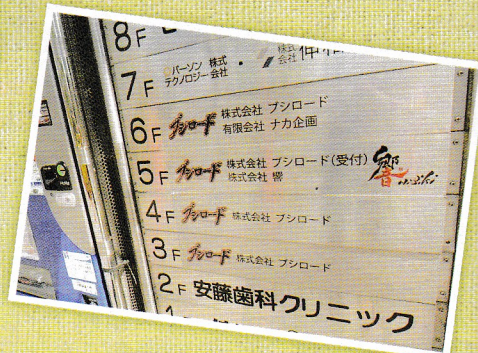 8F
7F パーソン 株式
テクノロジー 会社 ・ 株式
会社
6F ブシロード 株式会社 ブシロード
有限会社 ナカ企画
5F ブシロード 株式会社 ブシロード(受付)
株式会社 響 響 HiBiKi
4F ブシロード 株式会社 ブシロード
3F ブシロード 株式会社 ブシロード
2F 安藤歯科クリニック